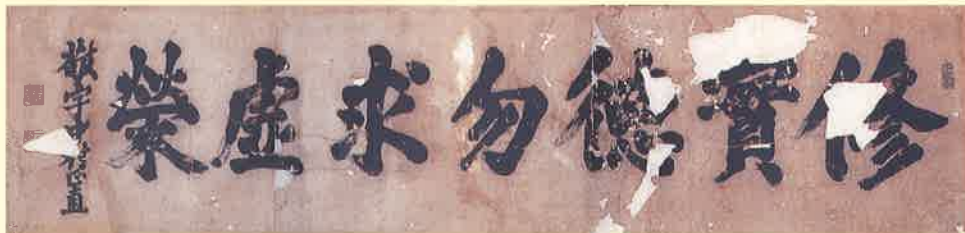 修實德勿求虚榮
敬宇中村正直